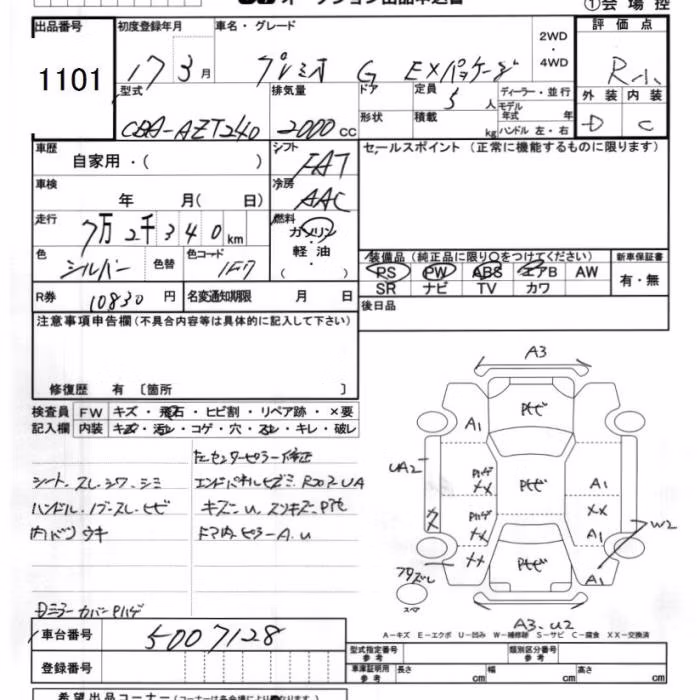 ①会場控
出品番号 初度登録年月 車名・グレード 評価点
1101 17 3月 プレミオ G EXパッケージ 2WD・4WD R小
型式 排気量 ドア 定員 5人 ディーラー・並行 外装 内装
CBA-AZT240 2000cc 形状 積載 kg モデル年式 年 ハンドル 左・右 D C
車歴 自家用・( ) シフト FAT セールスポイント (正常に機能するものに限ります)
車検 年 月( 日) 冷房 AAC
走行 7万2千340km 燃料 ガソリン・軽油・( )
色 シルバー 色替 色コード 1F7 装備品 (純正品に限り○をつけてください) 新車保証書
PS PW ABS エアB AW 有・無
SR ナビ TV カワ
R券 10830円 名変通知期限 月 日 後日品
注意事項申告欄(不具合内容等は具体的に記入して下さい)
修復歴 有 〔箇所 〕
検査員 FW キズ・飛石・ヒビ割・リペア跡・×要
記入欄 内装 キズ・汚レ・コゲ・穴・スレ・キレ・破レ
センターピラー修正
シート、スレ、シワ、シミ エンドパネルヒズミ
ハンドル、ノブ、スレ、ヒビ キズ
内バリ ウキ ピラーA.U
Dミラーカバー Pハゲ
A3
A1 Pセビ
UA2 Pハゲ XX Pセビ A1
XX
Pハゲ XX A1 W2
XX Pセビ A1
スペア
A3.U2
A-キズ E-エクボ U-凹み W-補修跡 S-サビ C-腐食 XX-交換済
車台番号 5007128
登録番号
型式指定番号 参考 類別区分番号 参考
車庫証明用 参考 長さ cm 幅 cm 高さ cm
希望出品コーナー